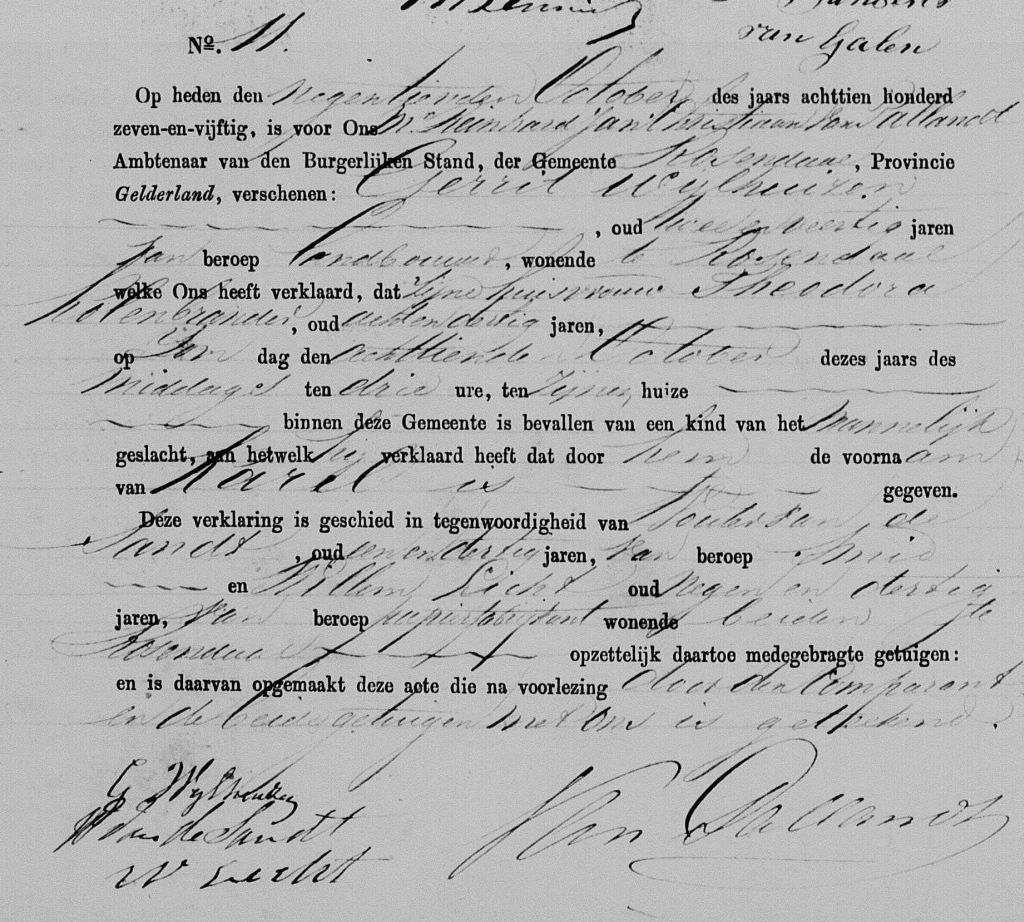 van Galen
No. 11.
Op heden den negentienden October des jaars achttien honderd
zeven-en-vijftig, is voor Ons Mr Reinhard Jan Christiaan van Pallandt
Ambtenaar van den Burgerlijken Stand, der Gemeente Rosendaal, Provincie
Gelderland, verschenen: Gerrit Wijlhuizen
, oud twee en veertig jaren
van beroep landbouwer, wonende te Rosendaal
welke Ons heeft verklaard, dat zijne huisvrouw Theodora
Holenbrander, oud acht en dertig jaren,
op den dag den achttiende October dezes jaars des
middags ten drie ure, ten zijnen huize
binnen deze Gemeente is bevallen van een kind van het mannelijk
geslacht, aan hetwelk hij verklaard heeft dat door hem de voornaam
van Karel is gegeven.
Deze verklaring is geschied in tegenwoordigheid van van de
Sandt, oud en dertig jaren, van beroep smid
en Willem Licht oud negen en dertig
jaren, van beroep papierfabrijkant wonende beiden te
Rosendaal opzettelijk daartoe medegebragte getuigen:
en is daarvan opgemaakt deze acte die na voorlezing door den Comparant
en de beide getuigen met ons is geteekend.
G Wijlhuizen
van de Sandt
W Licht
Van Pallandt